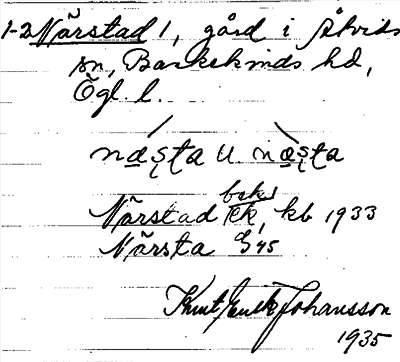 1-2 Närstad 1, gård i Åtvids
sn, Bankekinds hd,
Ögl. l.
næṣṭa u. næṣṭa
Närstad ek, kb 1933
Närsta G 45
Knut Johansson
1935